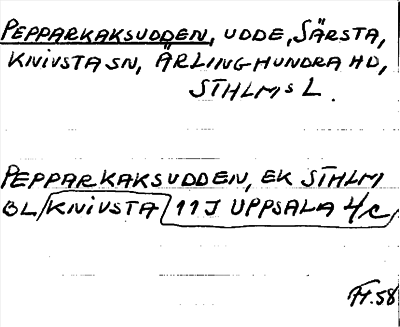 PEPPARKAKSUDDEN, UDDE, SÄRSTA,
KNIVSTA SN, ÄRLINGHUNDRA HD,
STHLMS L.
PEPPARKAKSUDDEN, EK STHLM
BL/KNIVSTA/11J UPPSALA 4/c,
58